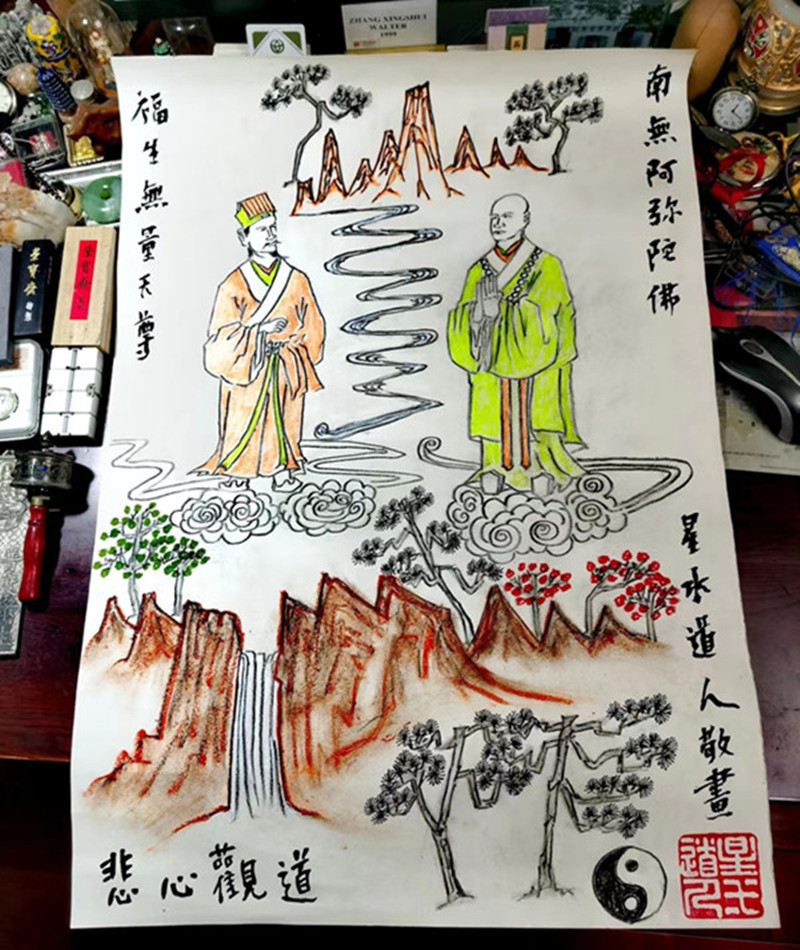 ZHANG XINGSHUI
WALTER
1999
南無阿弥陀佛
福生無量天尊
星水道人敬畫
悲心觀道
星水道人